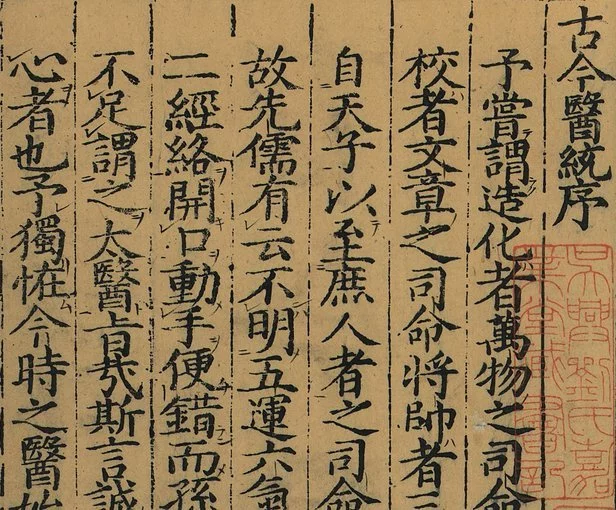 古今醫統序
予嘗謂造化者萬物之司命
校者文章之司命將帥者三
自天子以至庶人者之司命
故先儒有云不明五運六氣
二經絡開口動手便錯而孫
不足謂之大醫旨哉斯言誠
心者也予獨恠今時之醫
吳興劉氏嘉
業堂藏書記